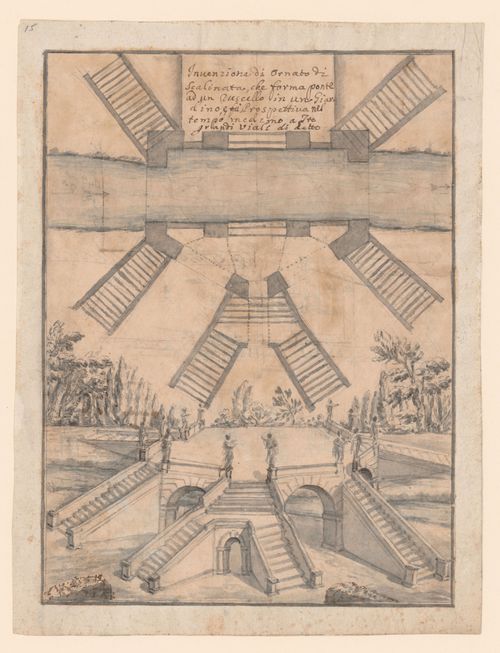 15
Invenzione di Ornato di
Scalinata, che forma ponte
ad un Ruscello in un Giar
dino, e fa Prospettiva nel
tempo in a Tre
grandi Viali di detto